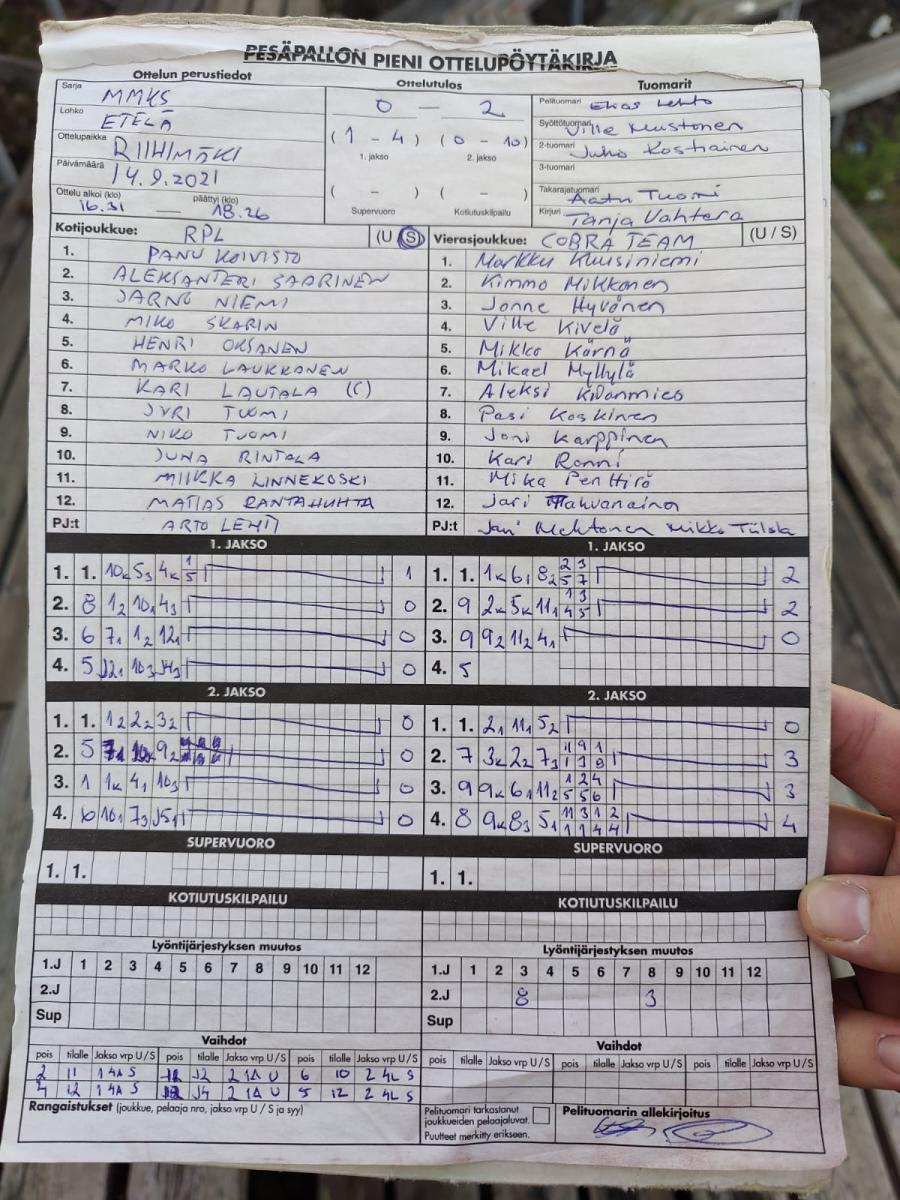 PESÄPALLON PIENI OTTELUPÖYTÄKIRJA
Ottelun perustiedot
Sarja MMKS
Lohko ETELÄ
Ottelupaikka RIIHIMÄKI
Päivämäärä 14.9.2021
Ottelu alkoi (klo) päättyi (klo)
16.31 — 18.26
Ottelutulos
0 — 2
(1 - 4) (0 - 10)
1. jakso 2. jakso
( - ) ( - )
Supervuoro Kotiutuskilpailu
Tuomarit
Pelituomari Lehto
Syöttötuomari Ville Mustonen
2-tuomari Juho Kostiainen
3-tuomari
Takarajatuomari Aatu Tuomi
Kirjuri Tanja Vahtera
Kotijoukkue: RPL (U / S)
1. PANU KOIVISTO
2. ALEKSANTERI SAARINEN
3. JARNO NIEMI
4. MIKO SKARIN
5. HENRI OKSANEN
6. MARKO LAUKKANEN
7. KARI LAUTALA (C)
8. JYRI TUOMI
9. NIKO TUOMI
10. JUHA RINTALA
11. MIIKKA LINNEKOSKI
12. MATIAS RANTAHUHTA
PJ:t ARTO LEHTI
Vierasjoukkue: COBRA TEAM (U / S)
1. Markku Kuusiniemi
2. Kimmo Mikkonen
3. Jonne Hyvönen
4. Ville Kivelä
5. Mikko Kärnä
6. Mikael Myllylä
7. Aleksi
8. Pasi Koskinen
9. Joni Karppinen
10. Kari Ronni
11. Mika Penttirö
12. Jari
PJ:t Mikko
1. JAKSO
1. 1. 10k 53 4k 1 5 1
2. 8 12 101 43 0
3. 6 71 12 121 0
4. 5 121 103 0
1. JAKSO
1. 1. 1k 61 82 2 3 5 7 2
2. 9 2k 5k 111 1 3 4 5 2
3. 9 92 112 41 0
4. 5
2. JAKSO
1. 1. 12 22 32 0
2. 5 92 0
3. 1 1k 41 103 0
4. 6 101 73 0
2. JAKSO
1. 1. 21 111 52 0
2. 7 3k 22 73 3
3. 9 9k 61 112 1 2 4 5 5 6 3
4. 8 9k 83 51 11 3 1 2 1 1 4 4 4
SUPERVUORO
1. 1.
SUPERVUORO
1. 1.
KOTIUTUSKILPAILU
KOTIUTUSKILPAILU
Lyöntijärjestyksen muutos
1.J 1 2 3 4 5 6 7 8 9 10 11 12
2.J
Sup
Lyöntijärjestyksen muutos
1.J 1 2 3 4 5 6 7 8 9 10 11 12
2.J 8 3
Sup
Vaihdot
pois tilalle Jakso vrp U / S pois tilalle Jakso vrp U / S pois tilalle Jakso vrp U / S
2 11 1 4A S 12 2 1A U 6 10 2 4L S
4 12 1 4A S 2 1A U 5 12 2 4L S
Rangaistukset (joukkue, pelaaja nro, jakso vrp U / S ja syy)
Vaihdot
pois tilalle Jakso vrp U / S pois tilalle Jakso vrp U / S pois tilalle Jakso vrp U / S
Pelituomari tarkastanut
joukkueiden pelaajaluvat.
Puutteet merkitty erikseen.
Pelituomarin allekirjoitus